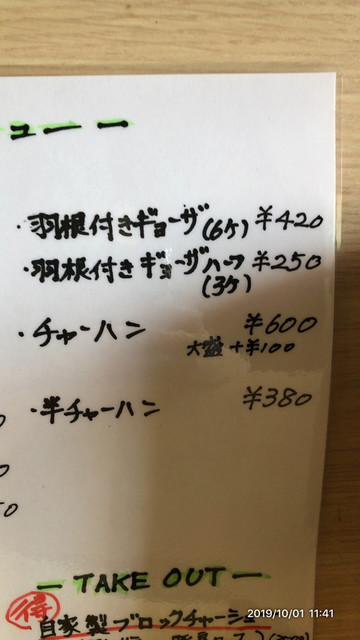 ュー
・羽根付きギョーザ(6ケ) ¥420
・羽根付きギョーザハーフ ¥250
(3ケ)
・チャーハン ¥600
大盛 +¥100
・半チャーハン ¥380
0
0
50
ー TAKE OUT ー
得 自家製ブロックチャーシュ
2019/10/01 11:41